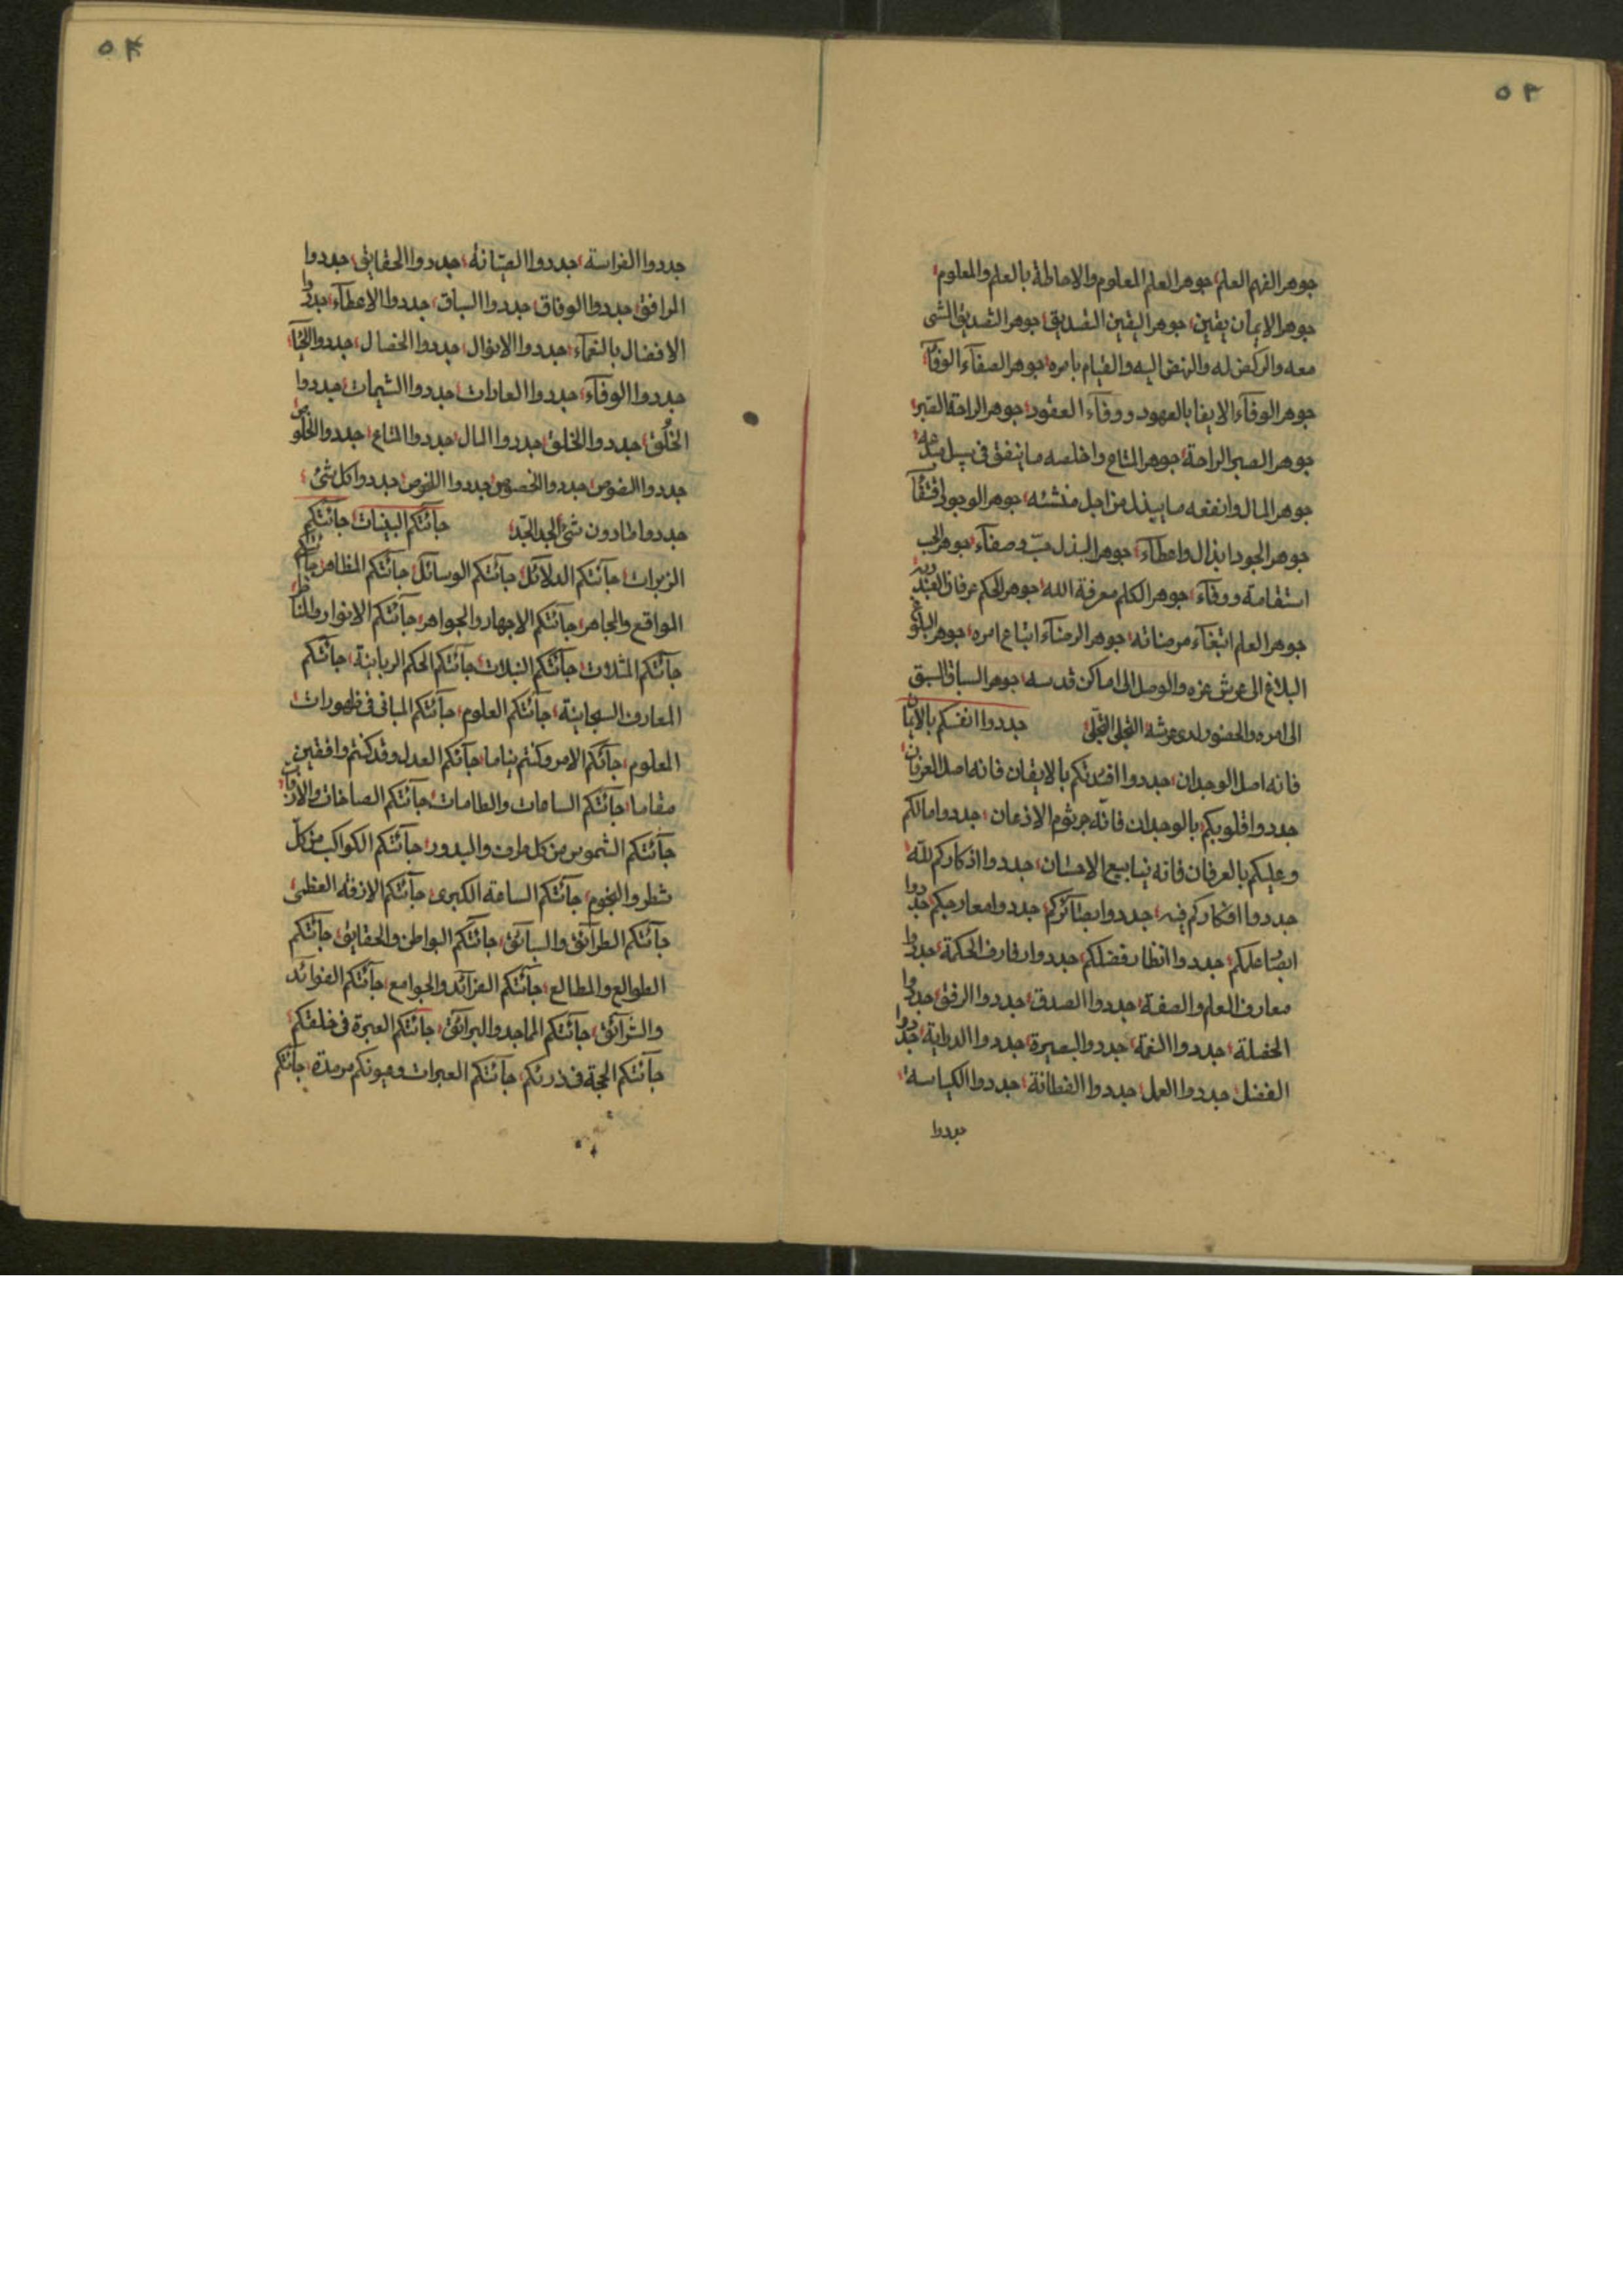 ٥٣
جوهر الفهم العلم جوهر العلم المعلوم والاحاطة بالعلم والمعلوم
جوهر الايمان يقين جوهر اليقين التصديق جوهر التصديق المشى
معه والركض له والنهض اليه والقيام بامره جوهر الصفآء الوفآء
جوهر الوفآء الايفا بالعهود ووفآء العقود جوهر الراحة الصبر
جوهر الصبر الراحة جوهر المتاع واخلصه ما ينفق فى سبيل
جوهر المال وانفعه ما يبذل من اجل منشئه جوهر الوجود
جوهر الجود ابذال واعطآء جوهر البذل حبّ وصفآء جوهر الحب
استقامة ووفآء جوهر الكلم معرفة الله جوهر الحكم عرفان
جوهر العلم ابتغآء مرضاته جوهر الرضآء اتباع امره جوهر البلوغ
البلاغ الى عرش عزه والوصل الى اماكن قدسه جوهر السباق السبق
الى امره والحضور لدى عرشه التجلى التجلى جددوا انفسكم بالايمان
فانه اصل الوجدان جددوا افئدتكم بالايقان فانه اصل العرفان
جددوا قلوبكم بالوجدان فانه جرثوم الاذعان جددوا مالكم
وعليكم بالعرفان فانه ينابيع الاحسان جددوا اذكاركم لله
جددوا افكاركم فيه جددوا بصآئركم جددوا معارجكم جددوا
جددوا انظار فضلكم جددوا رفارف الحكمة جددوا
معارف العلم والصفة جددوا الصدق جددوا الرفق جددوا
الخصلة جددوا النعمة جددوا البصيرة جددوا الدراية جددوا
الفضل جددوا العمل جددوا الفطانة جددوا الكياسة
جددوا
٥٤
جددوا الفراسة جددوا الصيانة جددوا الحقايق جددوا
المرافق جددوا الوفاق جددوا السباق جددوا الاعطآء جددوا
الافضال بالنعمآء جددوا الانوال جددوا الخصال جددوا
جددوا الوفآء جددوا العادات جددوا الشيمات جددوا
الخُلق جددوا الخلق جددوا المال جددوا المتاع جددوا الخلوص
جددوا جددوا الخصوص جددوا جددوا كل شئ
جددوا مادون شئ الجد الجد جآئتكم البينات جآئتكم
الزبرات جآئتكم الدلآئل جآئتكم الوسآئل جآئتكم المظاهر جآئتكم
المواقع والمجاهر جآئتكم الاجهار والجواهر جآئتكم الانوار والمناظر
جآئتكم المثلات جآئتكم جآئتكم الحكم الربانية جآئتكم
المعارف السبحانية جآئتكم العلوم جآئتكم المبانى فى ظهورات
المعلوم جآئكم الامر وكنتم نياما جآئكم العدل وقد كنتم واقفين
مقاما جآئتكم الساعات والطامات جآئتكم الصاخات والازفات
جآئتكم الشموس من كل طرف والبدور جآئتكم الكواكب من كلّ
شطر والنجوم جآئتكم الساعة الكبرى جآئتكم الازفة العظمى
جآئتكم الطرآئق والسبآئق جآئتكم البواطن والحقايق جآئتكم
الطوالع والمطالع جآئتكم الفرآئد والجوامع جآئتكم الفوآئد
والشرآئق جآئتكم المماجد والبرآئق جآئتكم العبرة فى خلقتكم
جآئتكم الحجة فى جآئتكم العبرات وعيونكم مرمدة جآئتكم